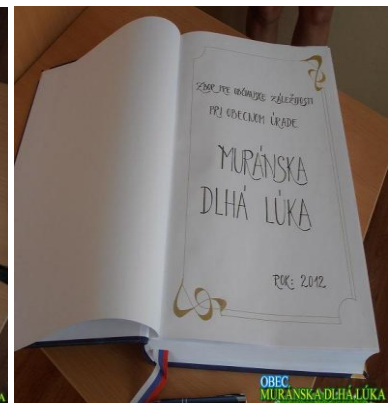 ZBOR PRE OBČIANSKE ZÁLEŽITOSTI
PRI OBECNOM ÚRADE
MURÁNSKA
DLHÁ LÚKA
ROK: 2012
OBEC
MURÁNSKA DLHÁ LÚKA